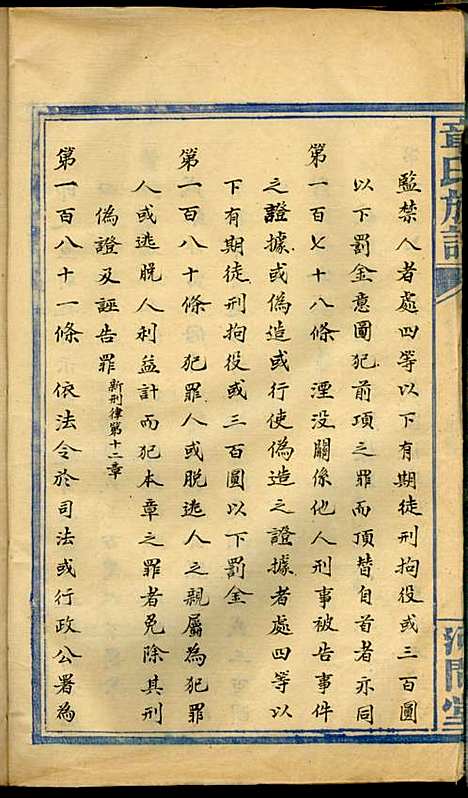 監禁人者處四等以下有期徒刑拘役或三百圓
以下罰金意圖犯前項之罪而頂替自首者亦同
第一百七十八條 湮没關係他人刑事被告事件
之證據或偽造或行使偽造之證據者處四等以
下有期徒刑拘役或三百圓以下罰金
第一百八十條 犯罪人或脱逃人之親屬為犯罪
人或逃脱人利益計而犯本章之罪者免除其刑
偽證及誣告罪 新刑律第十二章
第一百八十一條 依法令於司法或行政公署為
章氏族譜